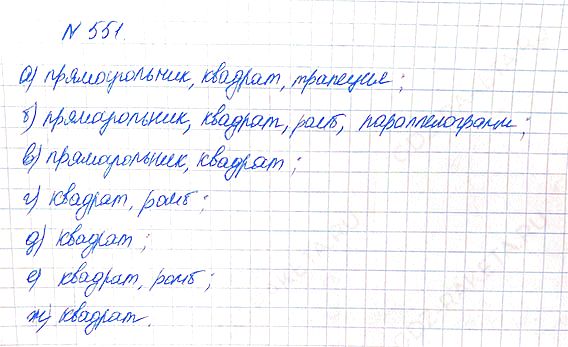 N 551.
а) прямоугольник, квадрат, трапеция;
б) прямоугольник, квадрат, ромб, параллелограмм;
в) прямоугольник, квадрат;
г) квадрат, ромб;
д) квадрат;
е) квадрат, ромб;
ж) квадрат.